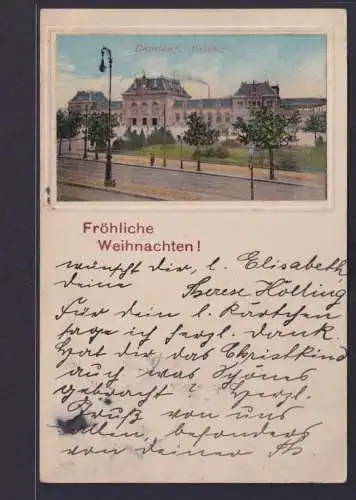 Düsseldorf. Bahnhof
Fröhliche
Weihnachten!
wünscht dir, l. Elisabeth
deine Therese Hölling
Für dein l. Kärtchen
sage ich herzl. Dank
Hat dir das Christkind
auch was Schönes
gebracht? Herzl.
Gruß von uns
allen, besonders
von deiner Th